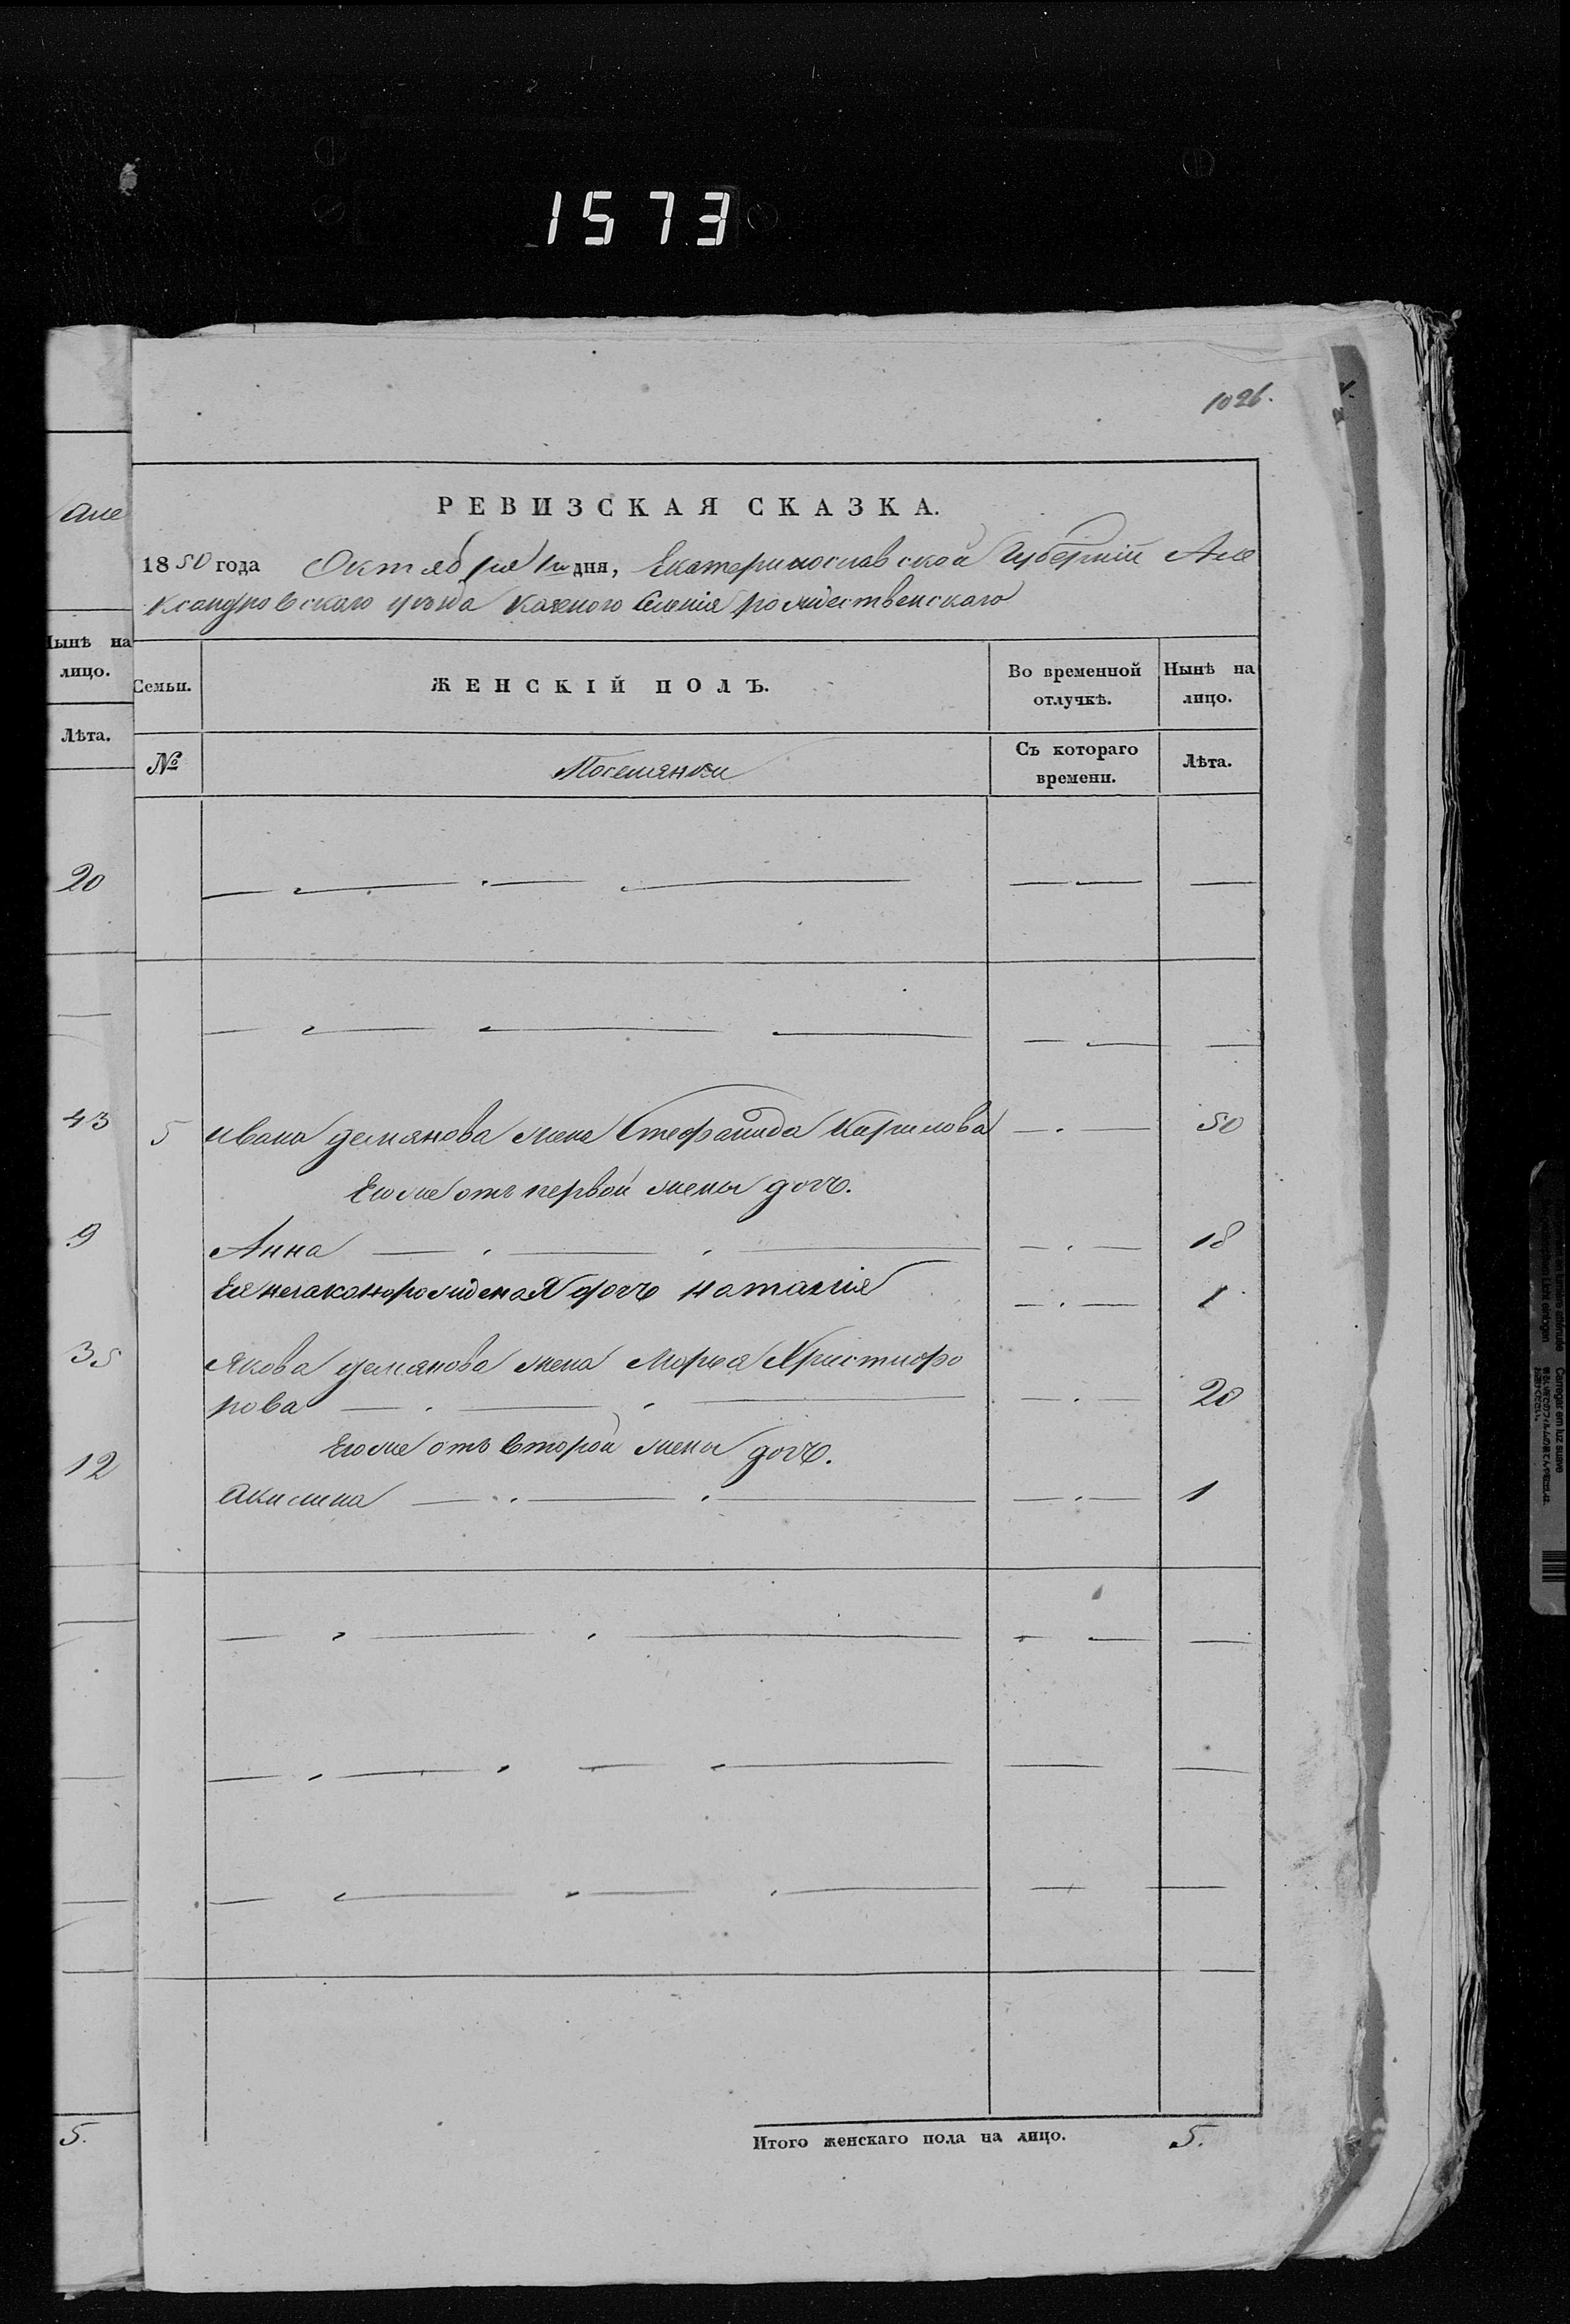 1573
1026.
РЕВИЗСКАЯ СКАЗКА.
1850 года Октября 1го дня, Екатеринославской Губернiи Але
ксандровскаго уѣзда Казеного Селенiя рождественскаго
Нынѣ на
лицо.
Лѣта.
Семьи.
ЖЕНСКІЙ ПОЛЪ.
Во временной
отлучкѣ.
Нынѣ на
лицо.
№
Поселянки
Съ котораго
времени.
Лѣта.
20
43
5 ивана демянова жена Стефанида Кирилова 50
Его же отъ первой жены дочь.
9
Анна 18
Ея незаконорожденая дочь наталiя 1
35
Якова демянова жена Марья Христофо
рова 20
Его же отъ второй жены дочь.
12
Акилина 1
5.
Итого женскаго пола на лицо. 5.